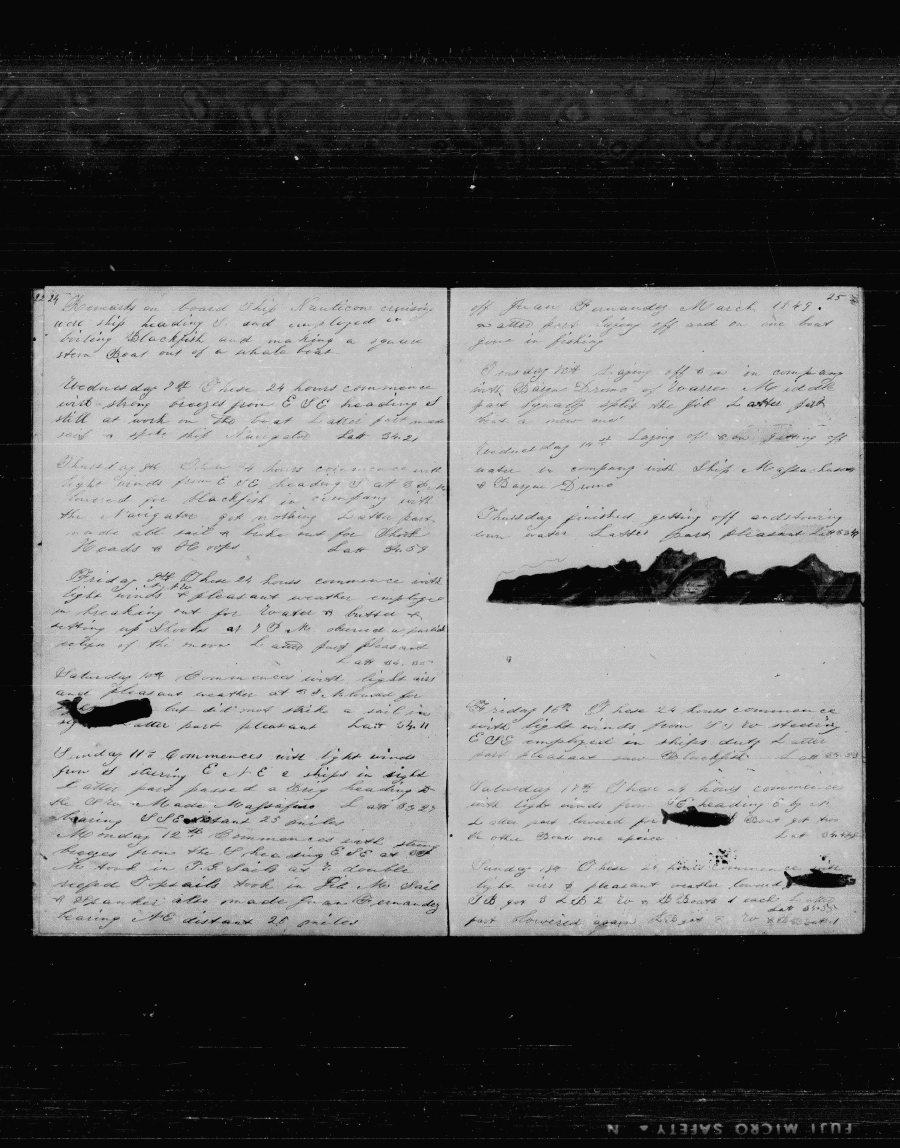 24
Remarks on board Ship Nauticon cruising
wore ship heading S. and employed in
boiling Blackfish and making a square
stern Boat out of a whale boat
Wednesday 7th These 24 hours commence
with strong breezes from E S E heading S
still at work on the boat Latter part made
sail & spoke ship Navigator Latt 34.21
Thursday 8th These 24 hours commence with
light winds from E S E heading S at
lowered for blackfish in company with
the Navigator got nothing Latter part
made all sail & broke out for Short
Heads & Hoops Latt 34.59
Friday 9th These 24 hours commence with
light winds & pleasant weather employed
in breaking out for Water &
setting up Shooks at 7 P M. observed a partial
eclips of the moon Latter part pleasant
Latt
Saturday 10th Commences with light airs
and pleasant weather at lowered for
but did not strike a sail in
latter part pleasant Latt 34.11
Sunday 11th Commences with light winds
from S steering E N E 2 ships in sight
Latter part passed a Brig heading to
the Made Massafuro Latt 33.
bearing S S E distant 25 miles
Monday 12th Commences with strong
breezes from the S heading E S E at
M took in T.G. Sails at double
reefed Topsails took in Jib M. Sail
& Spanker also made Juan Fernandez
bearing N E distant 25 miles
25
off Juan Fernandez March 1849.
latter part laying off and on one boat
gone in fishing
Tuesday 13th Laying off & on in company
with Barque Drumo of Warren Middle
part squally split the jib Latter part
bent a new one
Wednesday 14th Laying off & on getting off
water in company with Ship Massachusetts
& Barque Drumo
Thursday finished getting off and stowing
down water Latter part pleasant Latt
Friday 16th These 24 hours commence
with light winds from S S W steering
E S E employed in ships duty Latter
part pleasant saw Blackfish Latt
Saturday 17th These 24 hours commences
with light winds from S E heading E by N
Latter part lowered for Boat got two
the other Boats one apiece Latt
Sunday 18 These 24 hours commence with
light airs & pleasant weather lowered
S B got 3 L B 2 W & B Boats 1 each Latter
Latt
part lowered again L B got W & B Boats 1
FUJI MICRO SAFETY N